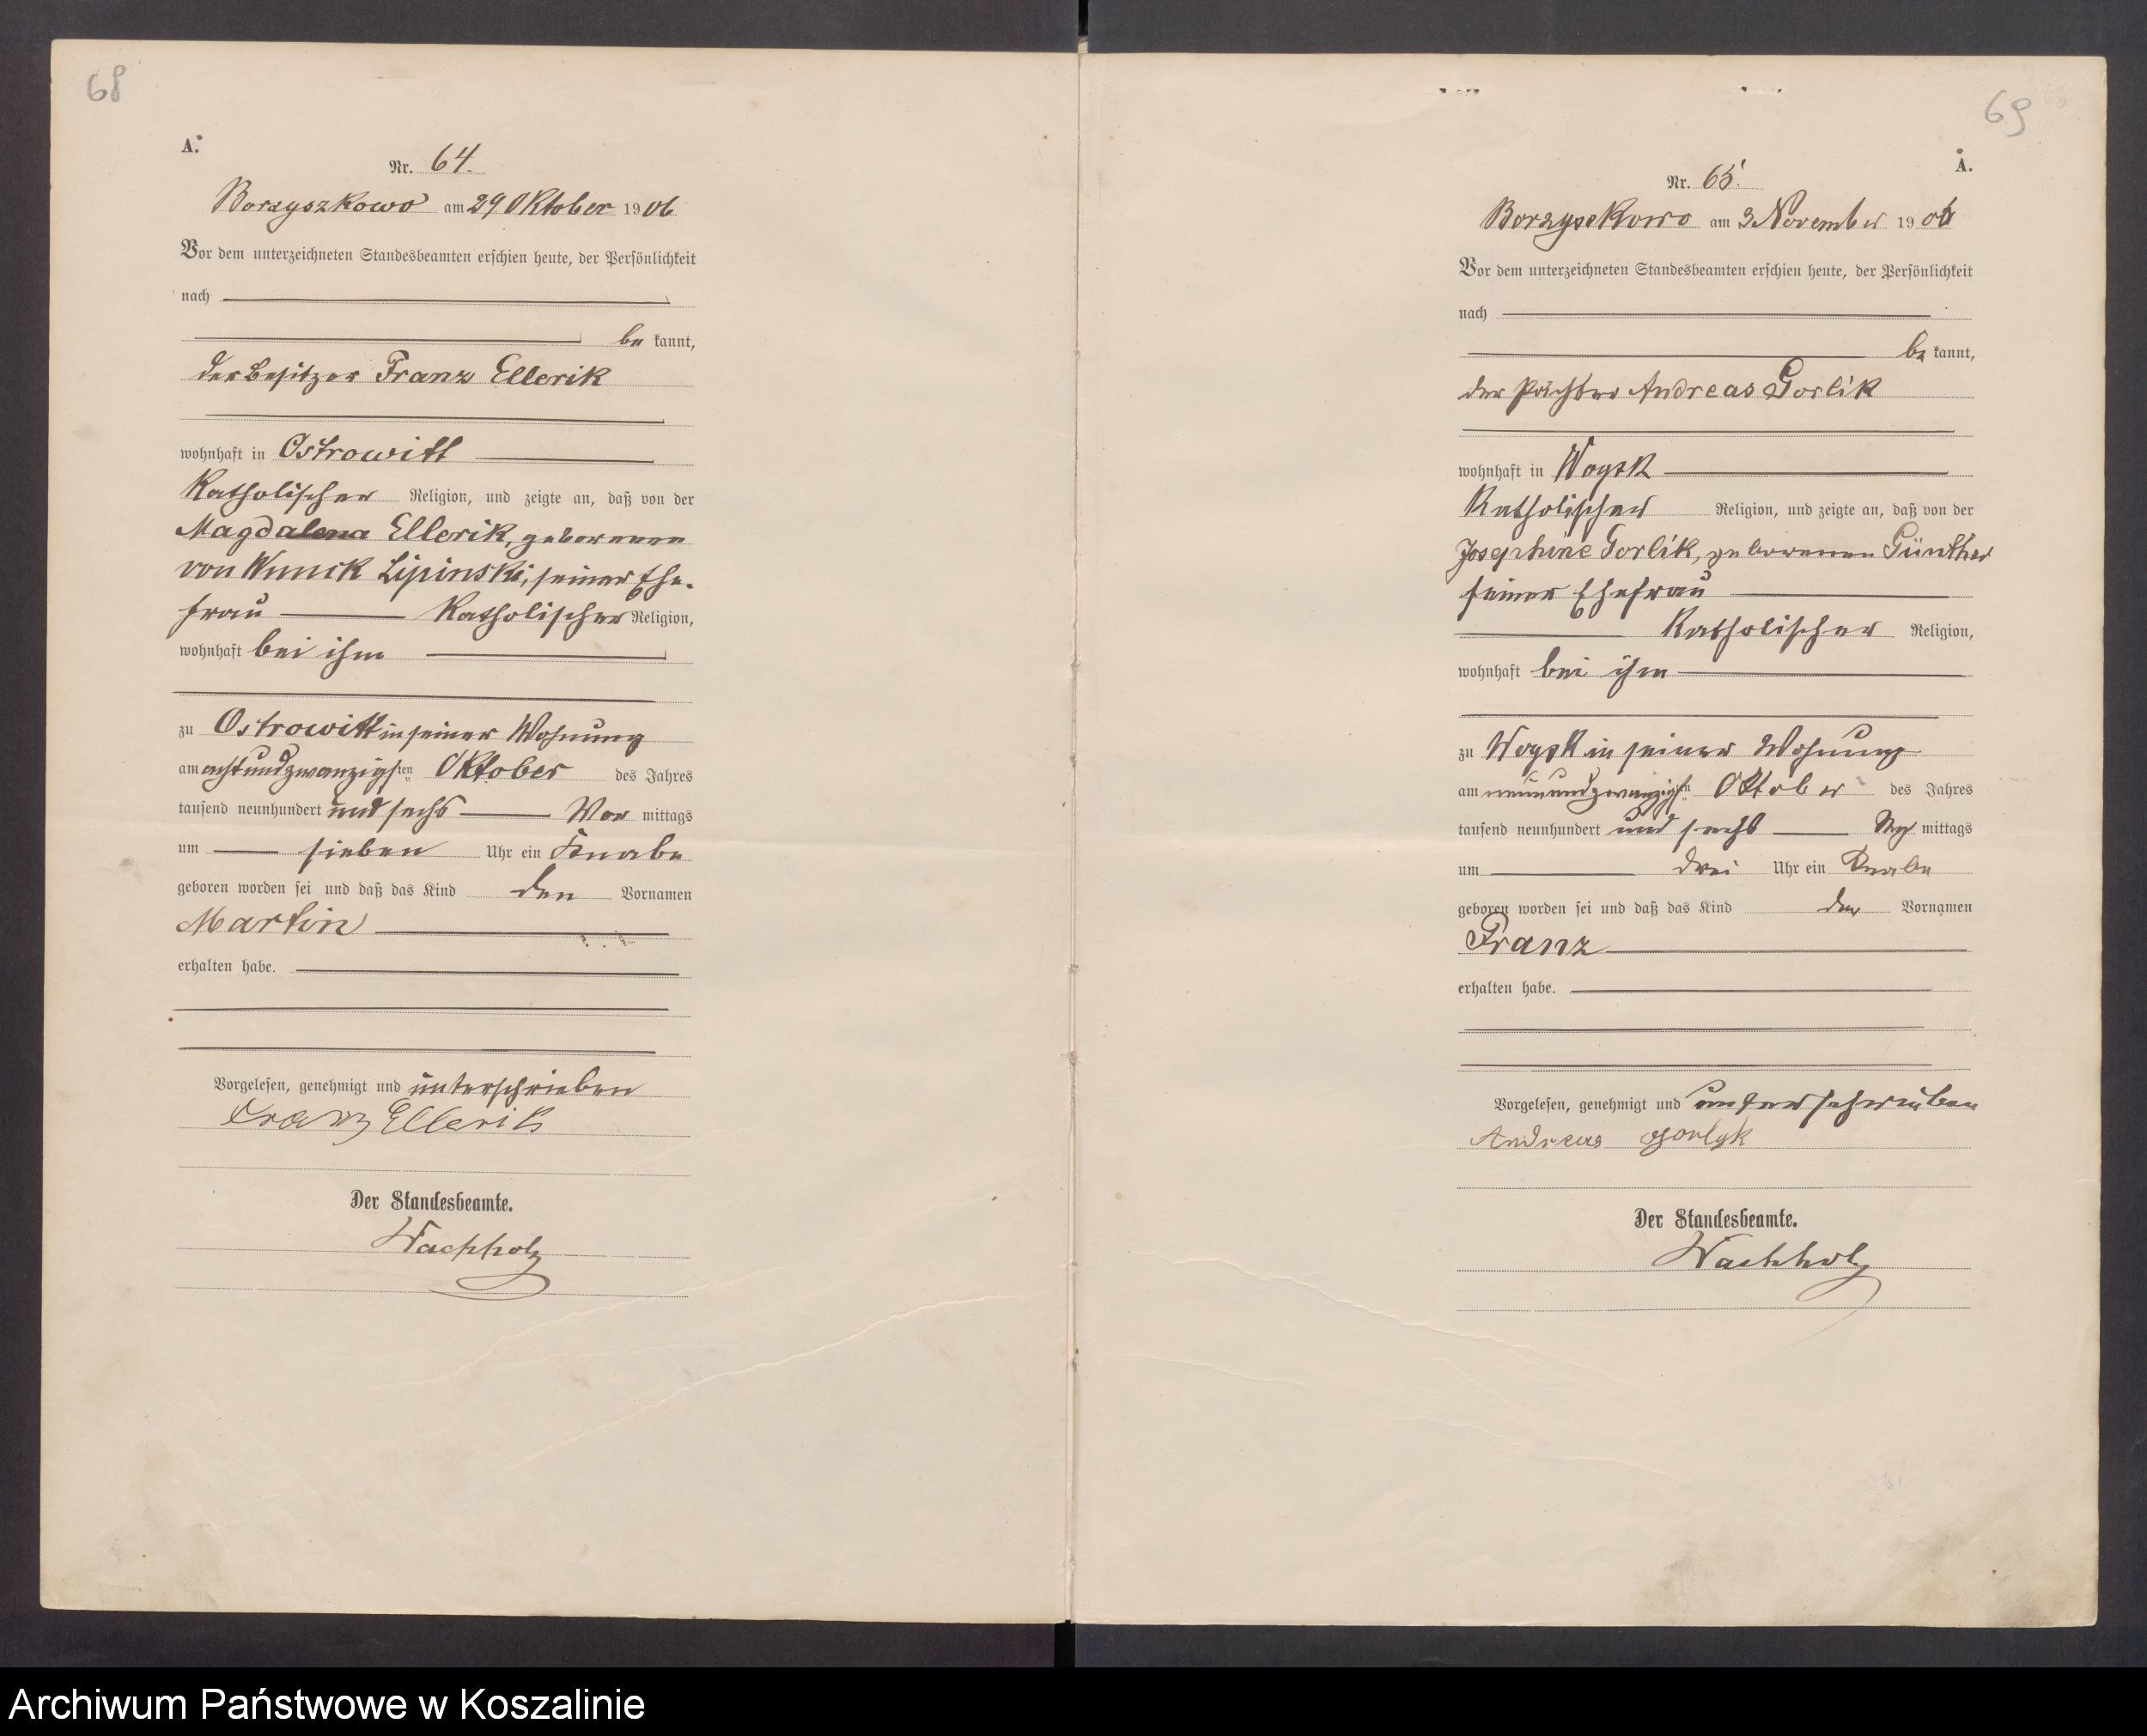 68
A.
Nr. 64.
Borzyszkowo am 29 Oktober 1906
Vor dem unterzeichneten Standesbeamten erschien heute, der Persönlichkeit
nach
be kannt,
der Besitzer Franz Ellerik
wohnhaft in Ostrowitt
Katholischer Religion, und zeigte an, daß von der
Magdalena Ellerik, geborenen
von Wnuck Lipinski, seiner Ehe-
frau Katholischer Religion,
wohnhaft bei ihm
zu Ostrowitt in seiner Wohnung
am achtundzwanzigsten Oktober des Jahres
tausend neunhundert und sechs Vor mittags
um sieben Uhr ein Knabe
geboren worden sei und daß das Kind den Vornamen
Martin
erhalten habe.
Vorgelesen, genehmigt und unterschrieben
Franz Ellerik
Der Standesbeamte.
Wachholz
69
A.
Nr. 65.
Borzyskowo am 3 November 1906
Vor dem unterzeichneten Standesbeamten erschien heute, der Persönlichkeit
nach
be kannt,
der Pächter Andreas Gorlik
wohnhaft in Woysk
Katholischer Religion, und zeigte an, daß von der
Josephine Gorlik, geborenen Günther
seiner Ehefrau
Katholischer Religion,
wohnhaft bei ihm
zu Woysk in seiner Wohnung
am neunundzwanzigsten Oktober des Jahres
tausend neunhundert und sechs mittags
um drei Uhr ein Knabe
geboren worden sei und daß das Kind den Vornamen
Franz
erhalten habe.
Vorgelesen, genehmigt und unterschrieben
Andreas Gorlyk
Der Standesbeamte.
Wachholz
Archiwum Państwowe w Koszalinie